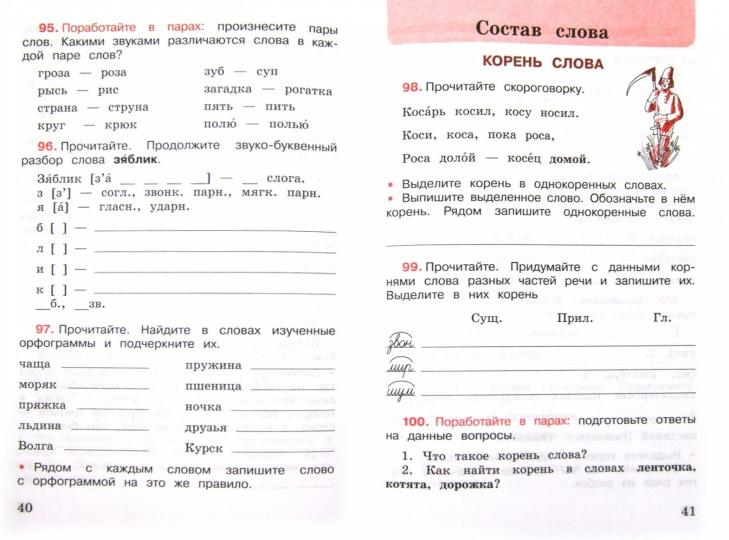 95. Поработайте в парах: произнесите пары
слов. Какими звуками различаются слова в каж-
дой паре слов?
гроза — роза зуб — суп
рысь — рис загадка — рогатка
страна — струна пять — пить
круг — крюк полю́ — полью́
96. Прочитайте. Продолжите звуко-буквенный
разбор слова зя́блик.
Зя́блик [з’а́ __ __ __ __] — __ слога.
з [з’] — согл., звонк. парн., мягк. парн.
я [а́] — гласн., ударн.
б [ ] —
л [ ] —
и [ ] —
к [ ] —
__б., __зв.
97. Прочитайте. Найдите в словах изученные
орфограммы и подчеркните их.
чаща пружина
моряк пшеница
пряжка ночка
льдина друзья
Волга Курск
• Рядом с каждым словом запишите слово
с орфограммой на это же правило.
40
Состав слова
КОРЕНЬ СЛОВА
98. Прочитайте скороговорку.
Коса́рь косил, косу носил.
Коси, коса, пока роса,
Роса доло́й — косе́ц домой.
• Выделите корень в однокоренных словах.
• Выпишите выделенное слово. Обозначьте в нём
корень. Рядом запишите однокоренные слова.
99. Прочитайте. Придумайте с данными кор-
нями слова разных частей речи и запишите их.
Выделите в них корень
Сущ. Прил. Гл.
звон
мир
шум
100. Поработайте в парах: подготовьте ответы
на данные вопросы.
1. Что такое корень слова?
2. Как найти корень в словах ленточка,
котята, дорожка?
41